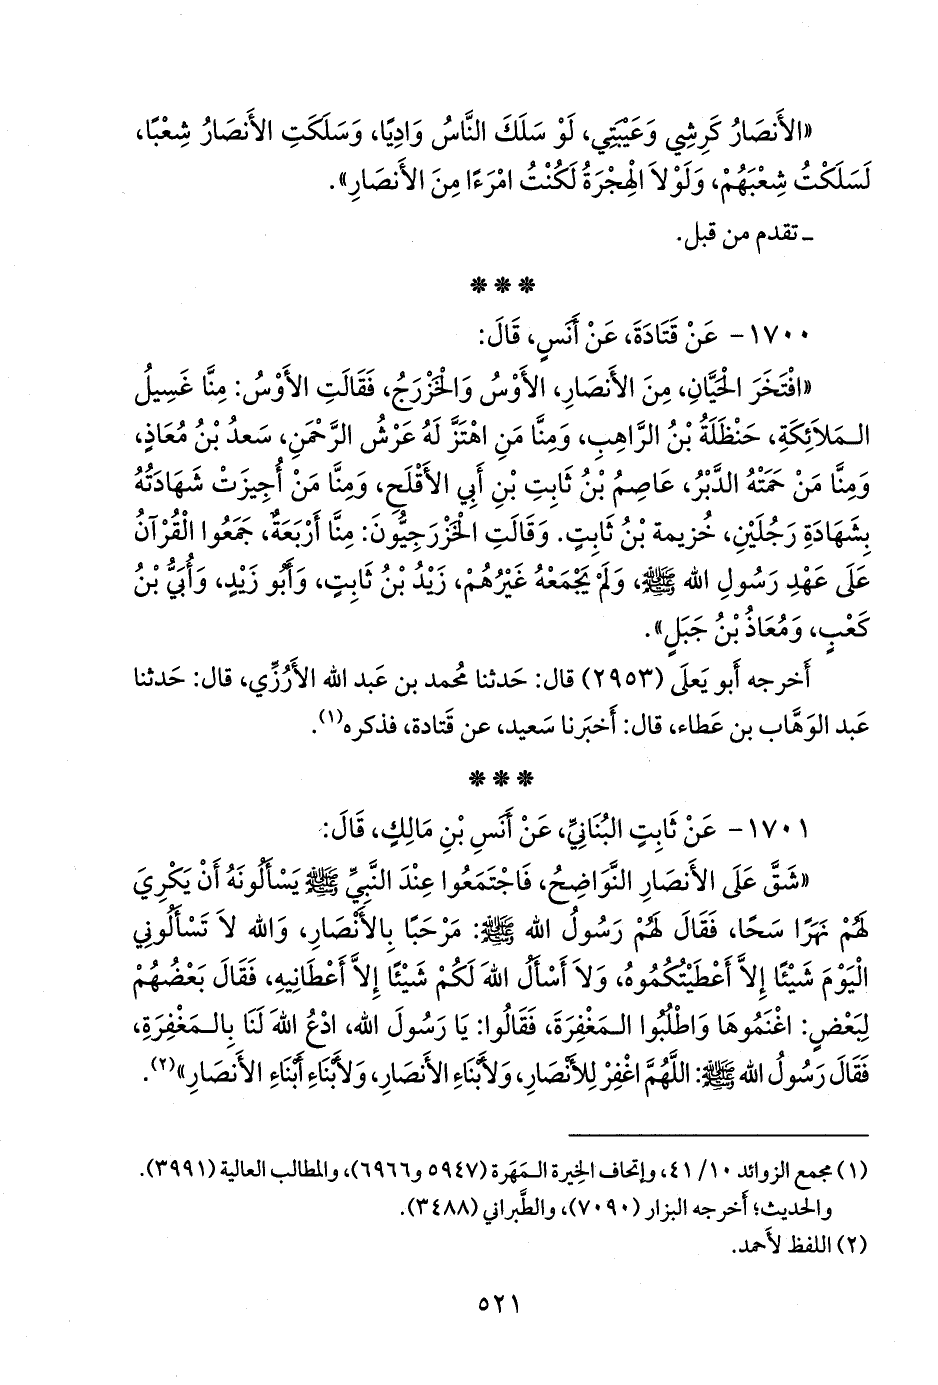 «الأَنصَارُ كَرِشِي وَعَيْبَتِي، لَوْ سَلَكَ النَّاسُ وَادِيًا، وَسَلَكَتِ الأَنصَارُ شِعْبًا،
لَسَلَكْتُ شِعْبَهُمْ، وَلَوْلاَ الْهِجْرَةُ لَكُنْتُ امْرَءًا مِنَ الأَنصَارِ».
ـ تقدم من قبل.
* * *
١٧٠٠- عَنْ قَتَادَةَ، عَنْ أَنَسٍ، قَالَ:
«افْتَخَرَ الْحَيَّانِ، مِنَ الأَنصَارِ، الأَوْسُ وَالْخَزْرَجُ، فَقَالَتِ الأَوْسُ: مِنَّا غَسِيلُ
الـمَلاَئِكَةِ، حَنْظَلَةُ بْنُ الرَّاهِبِ، وَمِنَّا مَنِ اهْتَزَّ لَهُ عَرْشُ الرَّحْمَنِ، سَعدُ بْنُ مُعَاذٍ،
وَمِنَّا مَنْ حَمَتْهُ الدَّبْرُ، عَاصِمُ بْنُ ثَابِتِ بْنِ أَبِي الأَقْلَحِ، وَمِنَّا مَنْ أُجِيزَتْ شَهَادَتُهُ
بِشَهَادَةِ رَجُلَيْنِ، خُزيمة بْنُ ثَابِتٍ. وَقَالَتِ الْخَزْرَجِيُّونَ: مِنَّا أَرْبَعَةٌ، جَمَعُوا الْقُرْآنَ
عَلَى عَهْدِ رَسُولِ الله ﷺ، وَلَمْ يَجْمَعْهُ غَيْرُهُمْ، زَيْدُ بْنُ ثَابِتٍ، وَأَبُو زَيْدٍ، وَأُبَيُّ بْنُ
كَعْبٍ، وَمُعَاذُ بْنُ جَبَلٍ».
أَخرجه أَبو يَعلَى (٢٩٥٣) قال: حَدثنا مُحمد بن عَبد الله الأَرُزِّي، قال: حَدثنا
عَبد الوَهَّاب بن عَطاء، قال: أَخبَرنا سَعيد، عن قَتادة، فذكره(١).
* * *
١٧٠١- عَنْ ثَابِتٍ البُنَانِيِّ، عَنْ أَنَسِ بْنِ مَالِكٍ، قَالَ:
«شَقَّ عَلَى الأَنصَارِ النَّوَاضِحُ، فَاجْتَمَعُوا عِنْدَ النَّبِيِّ ﷺ يَسْأَلُونَهُ أَنْ يَكْرِيَ
لَهُمْ نَهَرًا سَحًّا، فَقَالَ لَهُمْ رَسُولُ الله ﷺ: مَرْحَبًا بِالأَنْصَارِ، وَالله لاَ تَسْأَلُونِي
الْيَوْمَ شَيْئًا إِلاَّ أَعْطَيْتُكُمُوهُ، وَلاَ أَسْأَلُ اللهَ لَكُمْ شَيْئًا إِلاَّ أَعْطَانِيهِ، فَقَالَ بَعْضُهُمْ
لِبَعْضٍ: اغْنَمُوهَا وَاطْلُبُوا الـمَغْفِرَةَ، فَقَالُوا: يَا رَسُولَ الله، ادْعُ اللهَ لَنَا بِالـمَغْفِرَةِ،
فَقَالَ رَسُولُ الله ﷺ: اللَّهُمَّ اغْفِرْ لِلأَنْصَارِ، وَلأَبْنَاءِ الأَنصَارِ، وَلأَبْنَاءِ أَبْنَاءِ الأَنصَارِ»(٢).
(١) مجمع الزوائد ١٠/ ٤١، وإتحاف الخِيرة الـمَهَرة (٥٩٤٧ و٦٩٦٦)، والمطالب العالية (٣٩٩١).
والحديث؛ أخرجه البزار (٧٠٩٠)، والطَّبراني (٣٤٨٨).
(٢) اللفظ لأَحمد.
٥٢١